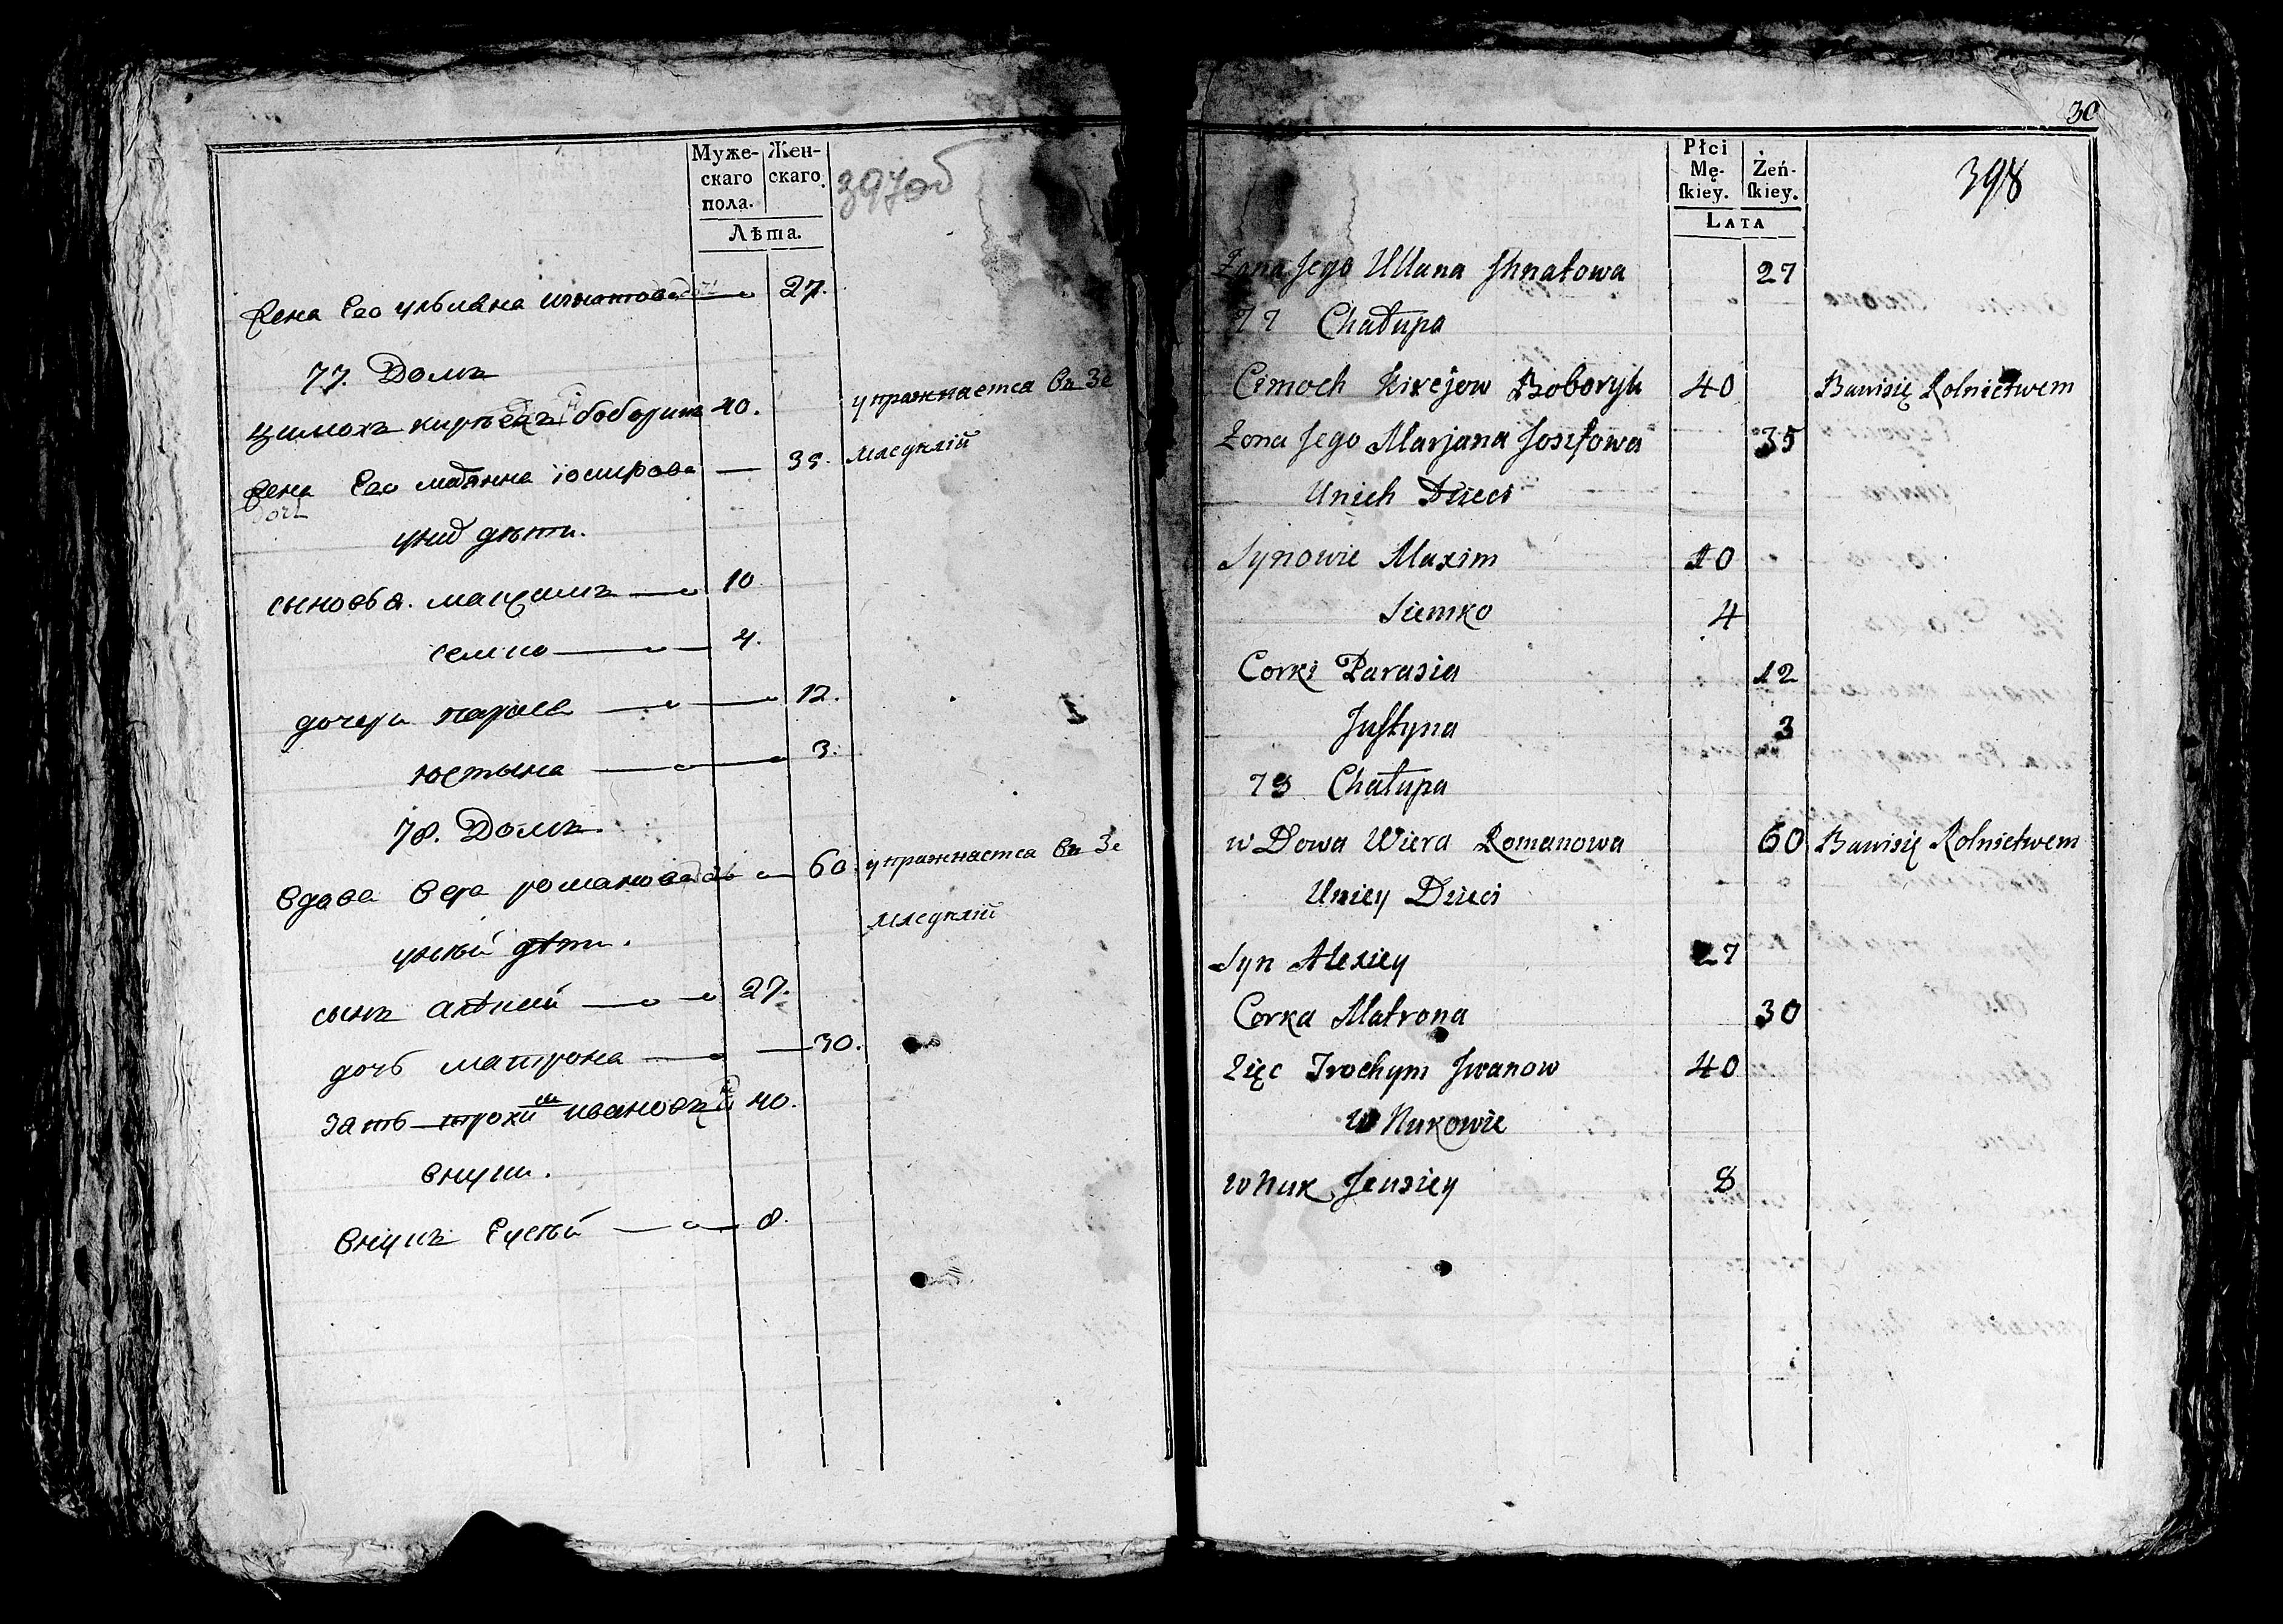 Муже-
скаго
пола.
Жен-
скаго.
Лѣта.
397об
Жена Его ульляна игнатова 27.
77. Домъ
цимохъ кирѣевъ боборика 40. упражнаетса въ Зе
Жена Его марянна iосифова 35. мледѣлiи
унихъ дѣти.
сыновья. макзимъ 10
семко 4.
дочери парася 12.
юстына 3.
78. Домъ.
вдова вера романова 60 упражнаетса въ Зе
мледѣлiи
унѣй дѣти.
сынъ алѣксей 27.
дочь матрона 30.
зать трохим ивановъ 40.
внуки.
внукъ Еусѣй 8.
30
Płci
Mę-
ſkiey.
Żeń-
ſkiey.
LATA
398
Żona Jego Ullana Ihnatowa 27
77 Chałupa
Cimoch Kirejow Boboryk 40 Bawisię Rolnictwem
Żona Jego Marjana Jozefowa 35
Unich Dzieci
Synowie Maxim 10
Siemko 4
Corki Parasia 12
Juſtyna 3
78 Chałupa
wDowa Wiera Romanowa 60 Bawisię Rolnictwem
Uniey Dzieci
Syn Alexiey 27
Corka Matrona 30
Zięc Trochym Iwanow 40
WNukowie
wNuk Jeusiey 8